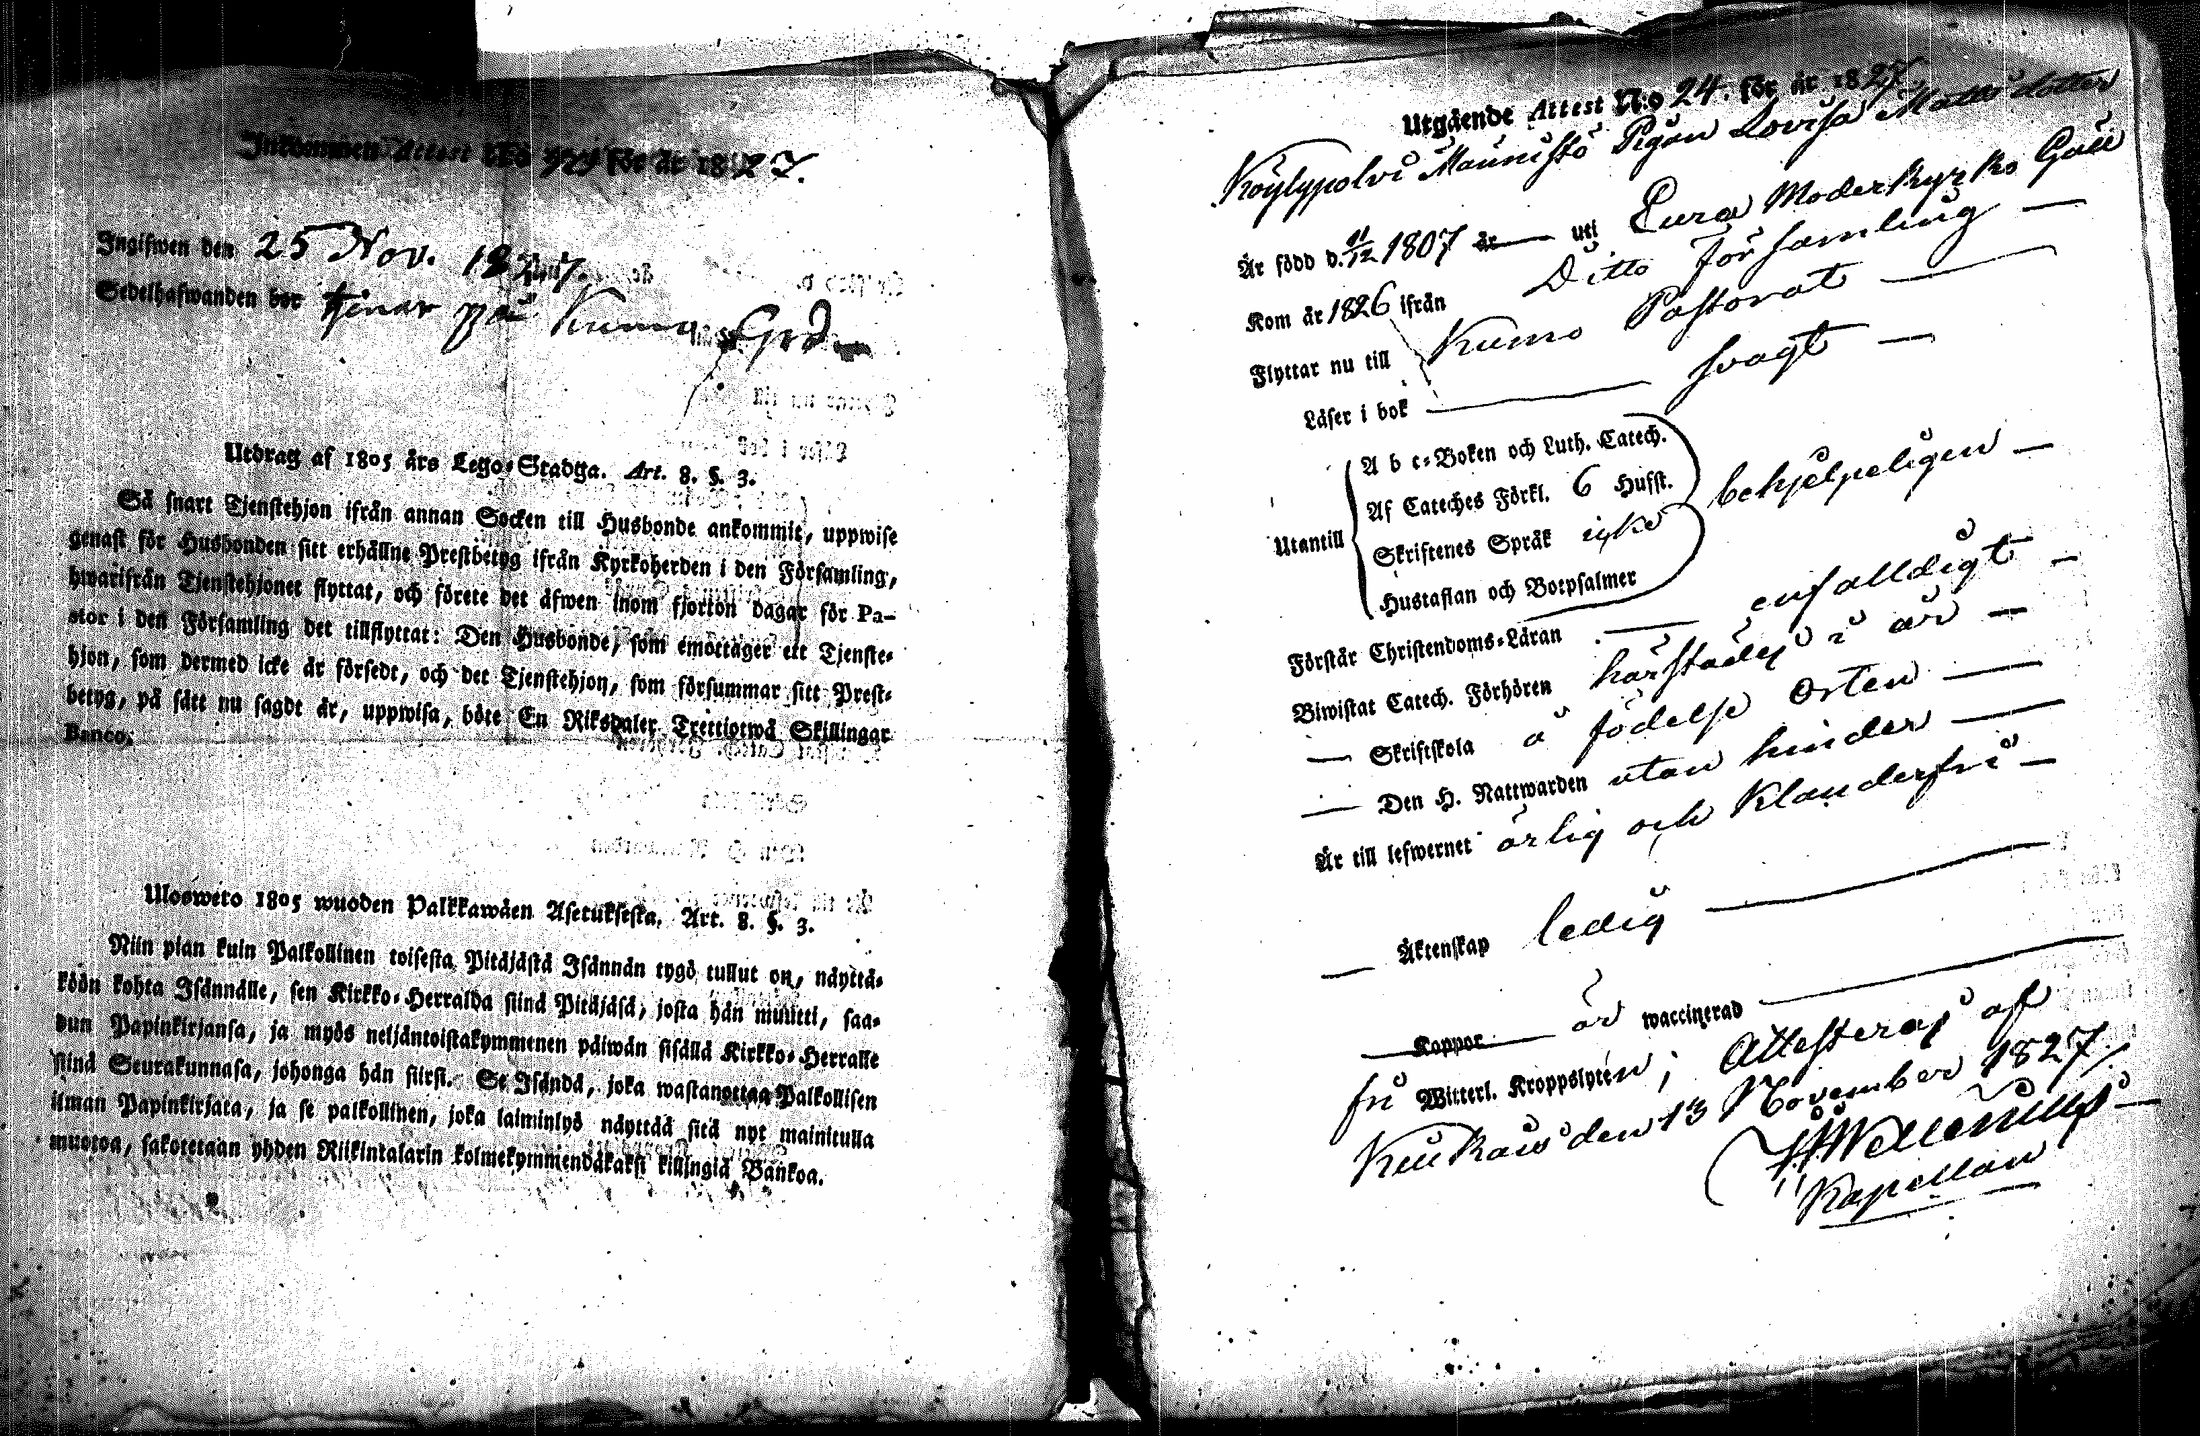 Inkommen Attest N:o för år 1827.
Ingifwen den 25 Nov. 1827.
Sedelhafwanden bor tjenar på Kumo Grd
Utdrag af 1805 års Lego-Stadga. Art. 8. §. 3.
Så snart Tjenstehjon ifrån annan Socken till Husbonde ankommit, uppwise
genast för Husbonden sitt erhållne Prestbetyg ifrån Kyrkoherden i den Församling,
hwarifrån Tjenstehjonet flyttat, och förete det äfwen inom fjorton dagar för Pa-
stor i den Församling det tillflyttat: Den Husbonde, som emottager ett Tjenste-
hjon, som dermed icke är försedt, och det Tjenstehjon, som försummar sitt Prest-
betyg, på sätt nu sagdt är, uppwisa, böte En Riksdaler Trettiotwå Skillingar
Banco.
Ulosweto 1805 wuoden Palkkawäen Asetuksesta. Art. 8. §. 3.
Niin pian kuin Palkollinen toisesta Pitäjästä Isännän tygö tullut on, näyttä-
köön kohta Isännälle, sen Kirkko-Herralda siinä Pitäjäsä, josta hän muutti, saa-
dun Papinkirjansa, ja myös neljäntoistakymmenen päiwän sisällä Kirkko-Herralle
siinä Seurakunnasa, johonga hän siirsi. Se Isändä, joka wastanottaa Palkollisen
ilman Papinkirjata, ja se palkollinen, joka laiminlyö näyttää sitä nyt mainitulla
muotoa, sakotetaan yhden Riikintalarin kolmekymmendäkaksi killingiä Bankoa.
Utgående Attest N:o 24. för år 1827.
Köylypolvi Maunisto Pigan Lovisa Matts dotter
Är född d. 11/12 1807 år uti Eura Moderkyrko Gäll
Kom år 1826 ifrån Ditto Församling —
Flyttar nu till Kumo Pastorat —
Läser i bok — svagt —
Utantill
A b c-Boken och Luth. Catech.
Af Cateches Förkl. 6 Hufst.
Skriftenes Språk icke
Hustaflan och Botpsalmer
behjelpeligen —
Förstår Christendoms-Läran — enfalldigt —
Biwistat Catech. Förhören härstädes i år —
— Skriftskola å födelse Orten —
— Den H. Nattwarden utan hinder —
Är till lefwernet ärlig och Klanderfri —
— Äktenskap ledig —
— Koppor — är waccinerad —
fri Witterl. Kroppslyten; Attesteras af
Kiukais den 13 November 1827.
Kapellan